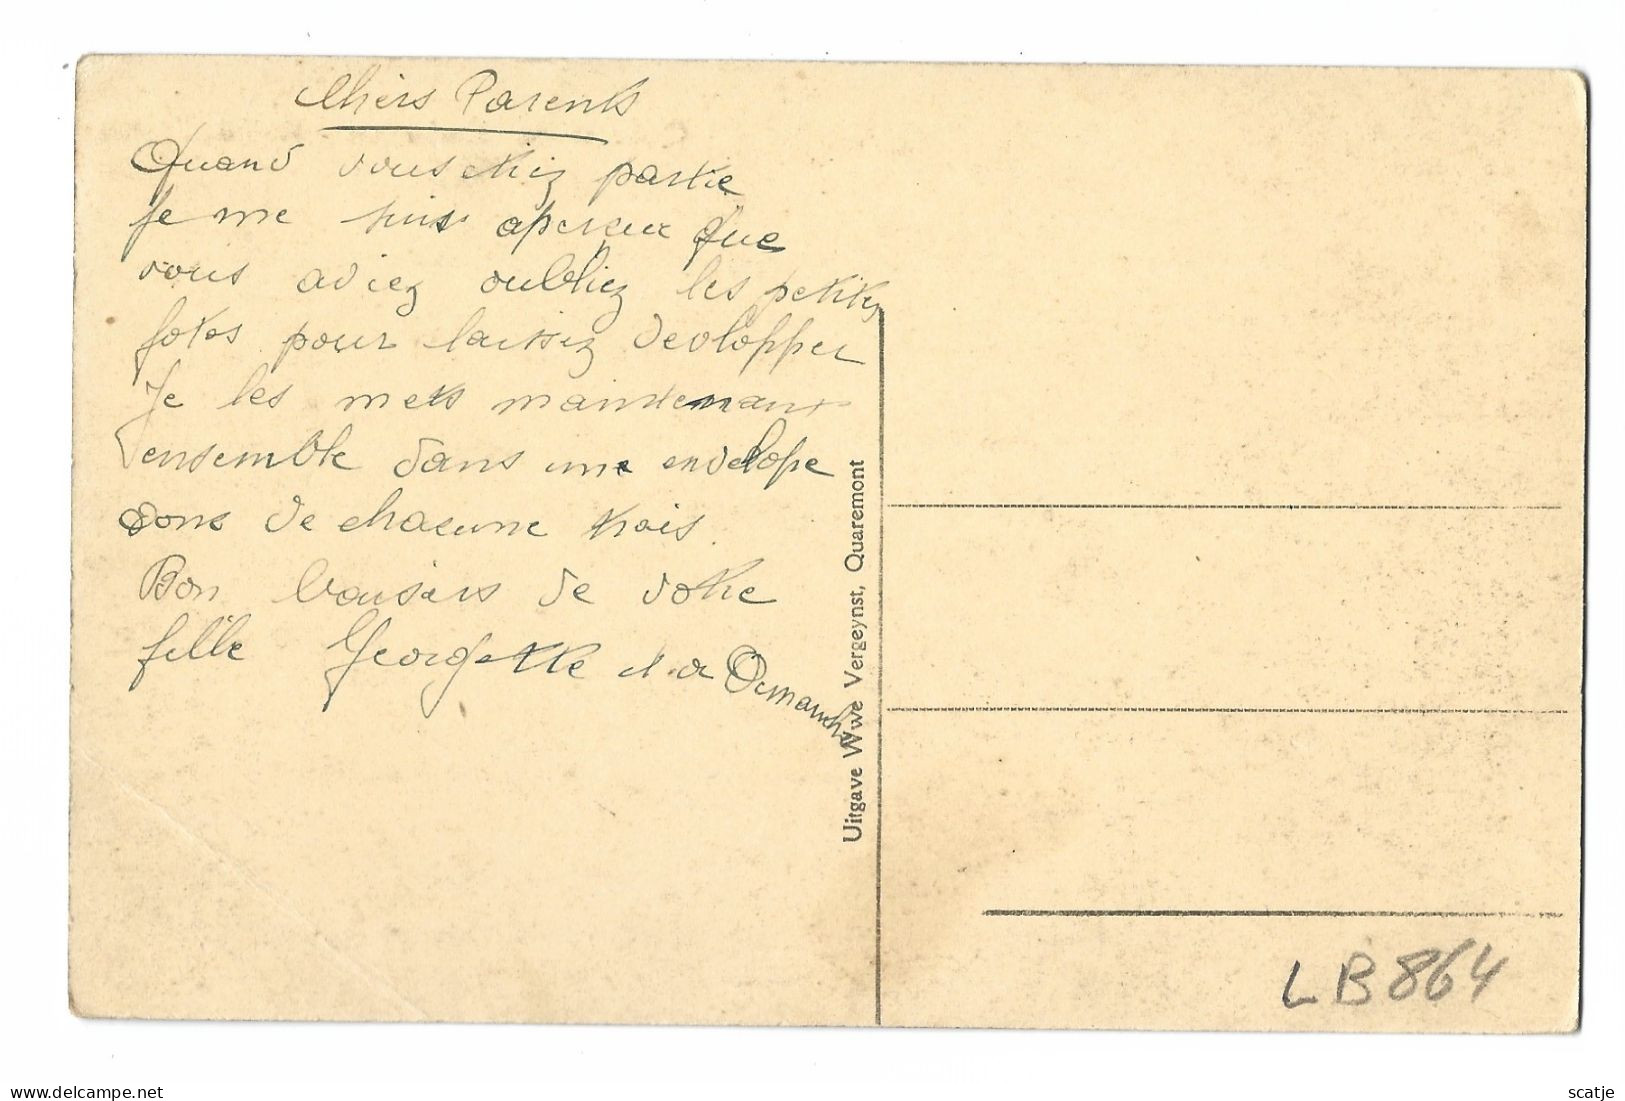 Chers Parents
Quand vous etiez partie
Je me suis aperseu que
vous aviez oubliez les petites
fotos pour laissez devlopper
Je les mets maintenant
ensemble dans une envelope
dons de chacune trois.
Bon baisers de votre
fille Georgette et a Dimanche
Uitgave Wwe Vergeynst, Quaremont
LB864
scatje